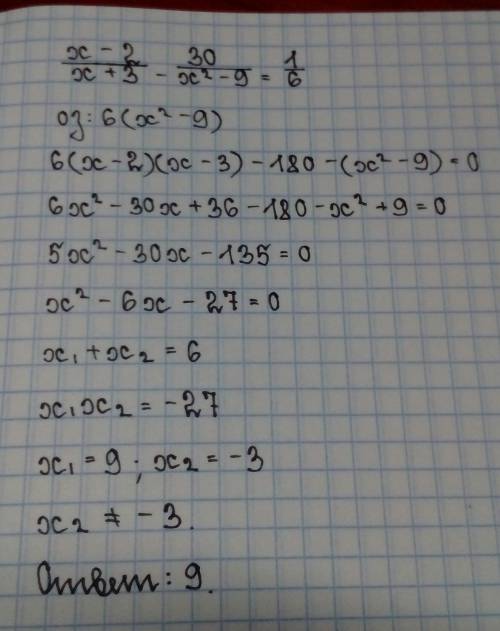 (x - 2)/(x + 3) - 30/(x² - 9) = 1/6
оз: 6(x² - 9)
6(x - 2)(x - 3) - 180 - (x² - 9) = 0
6x² - 30x + 36 - 180 - x² + 9 = 0
5x² - 30x - 135 = 0
x² - 6x - 27 = 0
x₁ + x₂ = 6
x₁x₂ = -27
x₁ = 9 ; x₂ = -3
x₂ ≠ -3.
Ответ: 9.